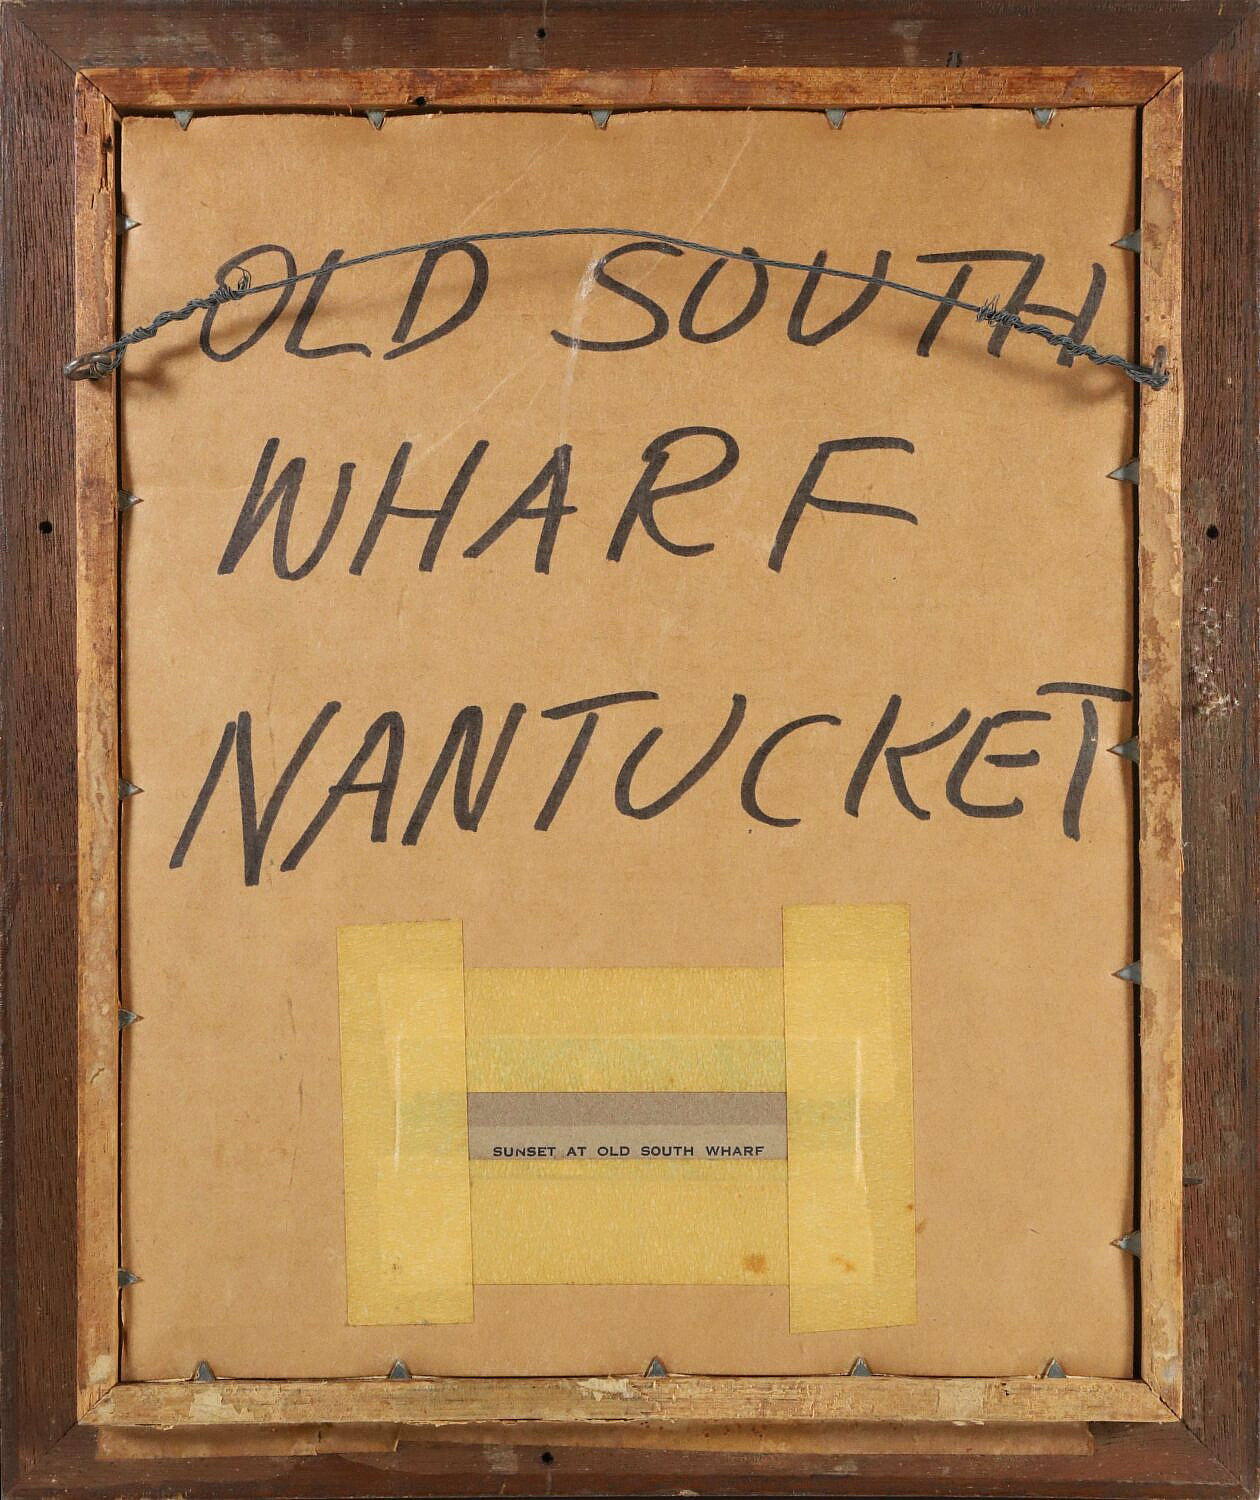 OLD SOUTH
WHARF
NANTUCKET
SUNSET AT OLD SOUTH WHARF